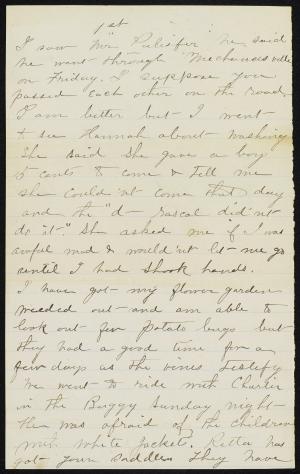 1st
I saw "Mr. Pulisfer" he said
he went through Mechanicsville
on Friday. I suppose you
passed each other on the road.
I am better but I went
to see Hannah about washing
She said she gave a boy
5 cents to come & tell me
she could'nt come that day
and the "d- rascal did'nt
do it." She asked me if I was
awful mad & would'nt let me go
until I had shook hands.
I have got my flower garden
weeded out and am able to
look out for potato bugs but
they had a good time for a
few days as the vines testify
We went to ride with Charlie
in the Buggy Sunday night
He was afraid of the children
with white jackets. Retta has
got your saddle. They have